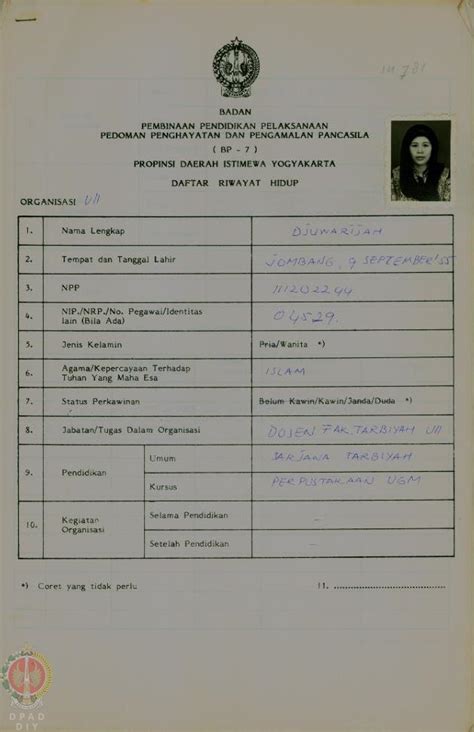 BADAN
PEMBINAAN PENDIDIKAN PELAKSANAAN
PEDOMAN PENGHAYATAN DAN PENGAMALAN PANCASILA
( BP - 7 )
PROPINSI DAERAH ISTIMEWA YOGYAKARTA
DAFTAR RIWAYAT HIDUP
ORGANISASI UII
1. Nama Lengkap DJUWARIJAH
2. Tempat dan Tanggal Lahir JOMBANG, 9 SEPTEMBER '55
3. NPP 111202244
4. NIP./NRP./No. Pegawai/Identitas lain (Bila Ada) 04529.
5. Jenis Kelamin Pria/Wanita *)
6. Agama/Kepercayaan Terhadap Tuhan Yang Maha Esa ISLAM
7. Status Perkawinan Belum Kawin/Kawin/Janda/Duda *)
8. Jabatan/Tugas Dalam Organisasi DOSEN FAK. TARBIYAH UII
9. Pendidikan Umum SARJANA TARBIYAH
Kursus PERPUSTAKAAN UGM
10. Kegiatan Organisasi Selama Pendidikan –
Setelah Pendidikan –
*) Coret yang tidak perlu 11. ..............................
DPAD
DIY